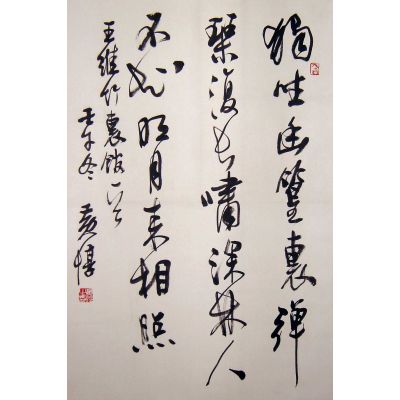 獨坐幽篁裏彈
琴復長嘯深林人
不知明月來相照
王維竹裏館一首
壬午冬 黃惇